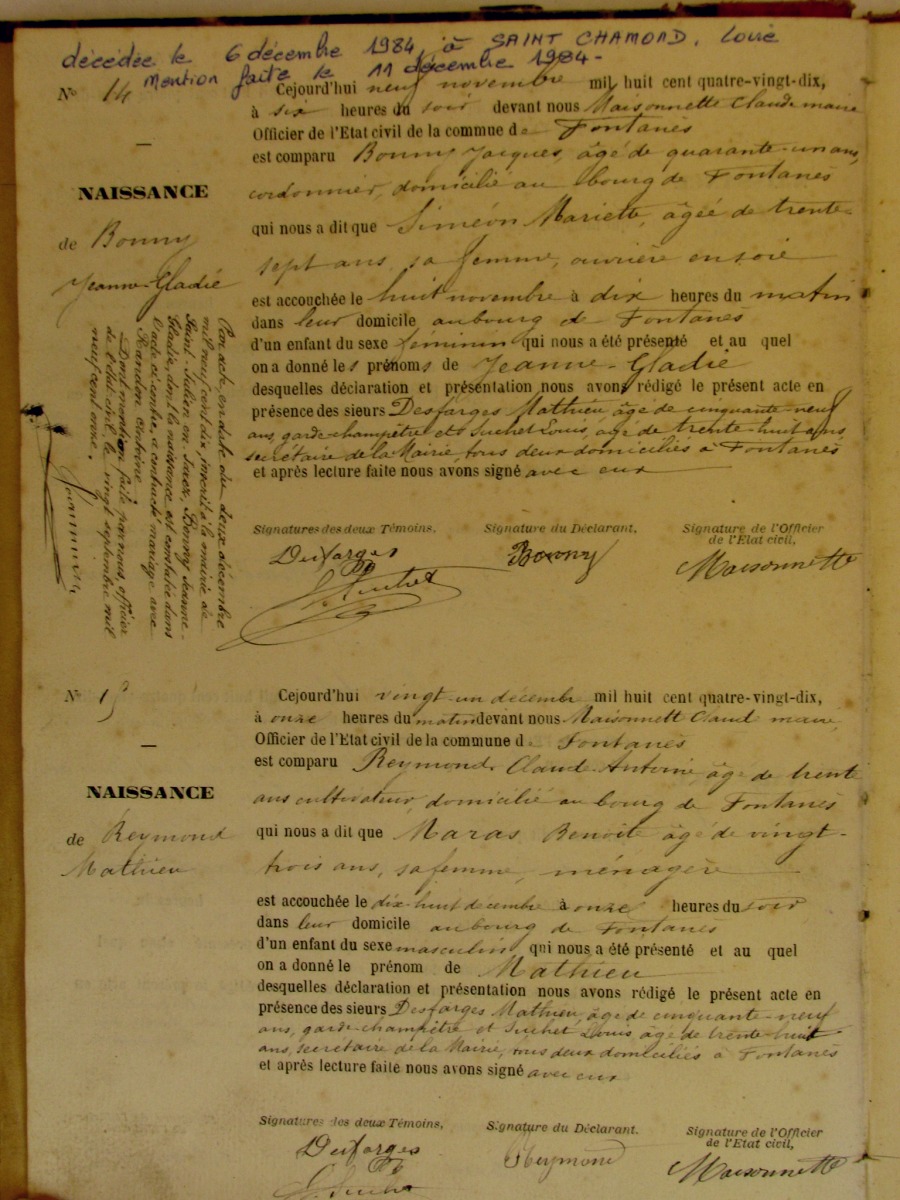 décédée le 6 décembre 1984, à SAINT CHAMOND, Loire
mention faite le 11 décembre 1984-
N° 14
NAISSANCE
de Bonny
Jeanne-Gladié
Cejourd'hui neuf novembre mil huit cent quatre-vingt-dix,
à six heures du soir devant nous Maisonnette Claude maire
Officier de l'Etat civil de la commune de Fontanès
est comparu Bonny Jacques, âgé de quarante-un ans,
cordonnier, domicilié au bourg de Fontanès
qui nous a dit que Siméon Mariette, âgée de trente-
sept ans, sa femme, ouvrière en soie
est accouchée le huit novembre à dix heures du matin
dans leur domicile au bourg de Fontanès
d'un enfant du sexe féminin qui nous a été présenté et au quel
on a donné les prénoms de Jeanne-Gladie
desquelles déclaration et présentation nous avons rédigé le présent acte en
présence des sieurs Desfarges Mathieu âgé de cinquante-neuf
ans, garde-champêtre et Suchet Louis, âgé de trente-huit ans
secrétaire de la Mairie, tous deux domiciliés à Fontanès
et après lecture faite nous avons signé avec eux
Par acte, en date du deux décembre
mil neuf cent dix, inscrit à la mairie de
Saint-Julien-en-Jarez, Bonny Jeanne-
Gladie, dont la naissance est constatée dans
l'acte ci-contre, a contracté mariage avec
Randon Antoine
Dont mention faite par nous, officier
de l'état civil, le vingt septembre mil
neuf cent onze.
Signatures des deux Témoins,
Desfarges
Suchet
Signature du Déclarant,
Bonny
Signature de l'Officier
de l'Etat civil,
Maisonnette
N° 15
NAISSANCE
de Reymond
Mathieu
Cejourd'hui vingt-un décembre mil huit cent quatre-vingt-dix,
à onze heures du matin devant nous Maisonnett Claude maire,
Officier de l'Etat civil de la commune de Fontanès
est comparu Reymond Claude-Antoine, âgé de trente
ans cultivateur, domicilié au bourg de Fontanès
qui nous a dit que Maras Benoite âgé de vingt-
trois ans, sa femme, ménagère
est accouchée le dix-huit décembre à onze heures du soir
dans leur domicile au bourg de Fontanès
d'un enfant du sexe masculin qui nous a été présenté et au quel
on a donné le prénom de Mathieu
desquelles déclaration et présentation nous avons rédigé le présent acte en
présence des sieurs Desfarges Mathieu, âgé de cinquante-neuf
ans, garde-champêtre et Suchet Louis, âgé de trente-huit
ans, secrétaire de la Mairie, tous deux domiciliés à Fontanès
et après lecture faite nous avons signé avec eux
Signatures des deux Témoins,
Desfarges
Suchet
Signature du Déclarant.
Reymond
Signature de l'Officier
de l'Etat civil,
Maisonnette